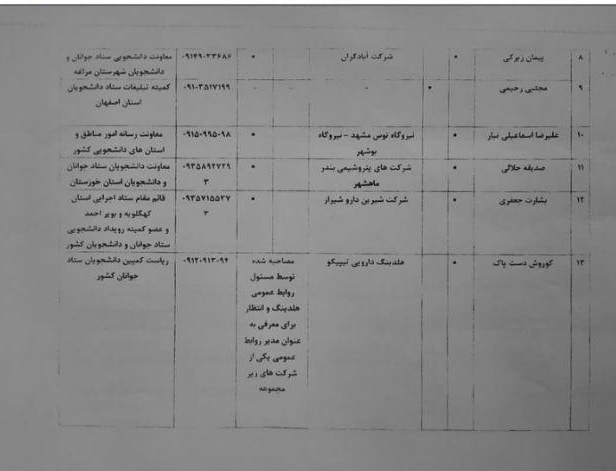 ۸ پیمان زیرکی • شرکت آبادگران • ۰۹۱۴۹۰۳۳۶۸۶ معاونت دانشجویی ستاد جوانان و
دانشجویان شهرستان مراغه
۹ مجتبی رحیمی • - - ۰۹۱۰۳۵۱۷۱۹۹ کمیته تبلیغات ستاد دانشجویان
استان اصفهان
۱۰ علیرضا اسماعیلی نیار • نیروگاه توس مشهد - نیروگاه • ۰۹۱۵۰۹۹۵۰۹۸ معاونت رسانه امور مناطق و
بوشهر استان های دانشجویی کشور
۱۱ صدیقه جلالی • شرکت های پتروشیمی بندر • ۰۹۳۵۸۹۲۷۲۹ معاونت دانشجویان ستاد جوانان
ماهشهر ۳ و دانشجویان استان خوزستان
۱۲ بشارت جعفری • شرکت شیرین دارو شیراز • ۰۹۳۵۷۱۵۵۲۷ قائم مقام ستاد اجرایی استان
۳ کهگلویه و بویر احمد
و عضو کمیته رویداد دانشجویی
ستاد جوانان و دانشجویان کشور
۱۳ کوروش دست پاک • هلدینگ دارویی تیپیکو مصاحبه شده ۰۹۱۲۰۹۱۳۰۹۴ ریاست کمپین دانشجویان ستاد
توسط مسئول جوانان کشور
روابط عمومی
هلدینگ و انتظار
برای معرفی به
عنوان مدیر روابط
عمومی یکی از
شرکت های زیر
مجموعه